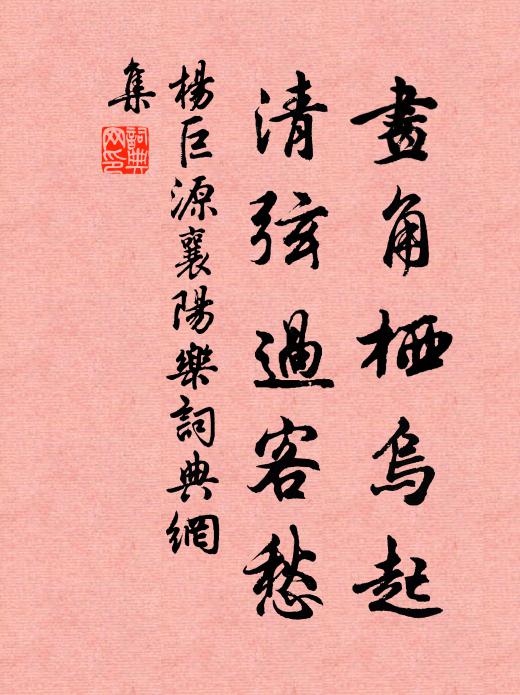 畫角栖烏起
清弦過客愁
楊巨源襄陽樂詞典網
集
詞典网印